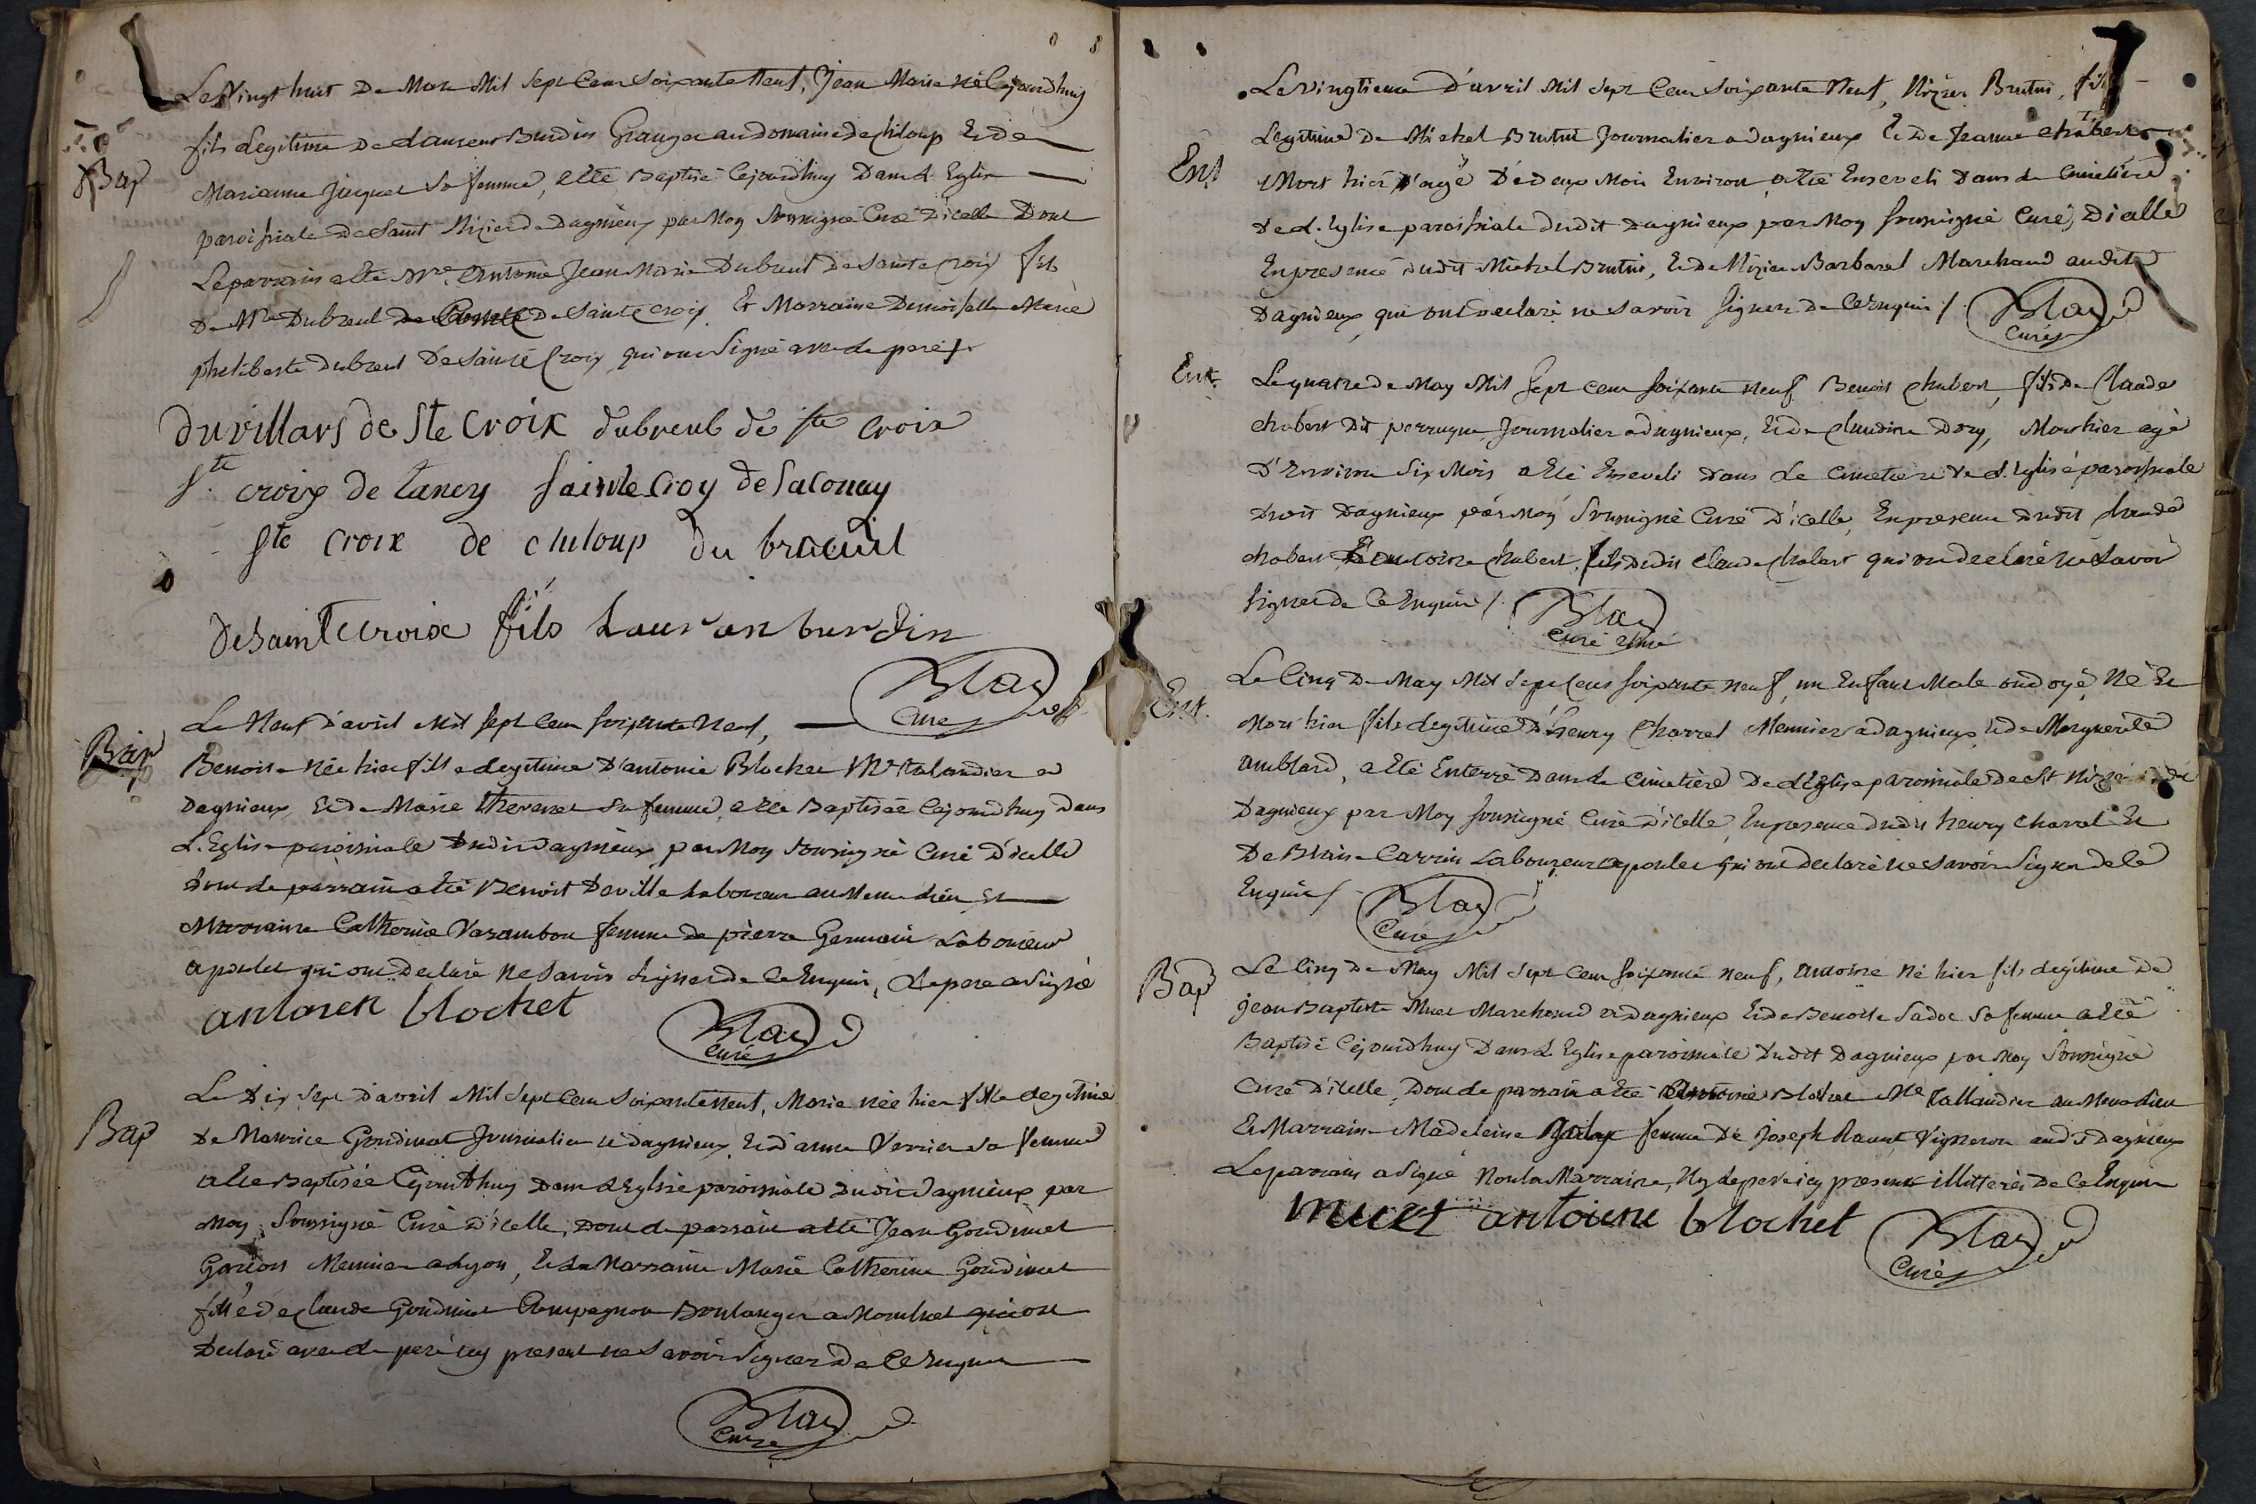 Le Vingt huit De Mars Mil Sept Cent Soixante Neuf, Jean Marie né Cejourdhuy
Bap
fils Legitime De Laurent Burdin Granger au domaine de Chiloup Et de
Marianne Jacquet Sa femme, a Eté Baptisé Cejourdhuy Dans L'Eglise
paroissiale De Saint Nizier de Dagnieux par Moy Soussigné Curé D'icelle Dont
Le parrain a Eté Mre. Antoine Jean Marie Dubreul de Sainte Croix fils
De Mre Dubreul De Sainte Croix Et Marraine Demoiselle Marie
philiberte dubreul De Sainte Croix qui ont Signé avec le pere /.
Duvillars de Ste Croix dubreul de ste croix
Ste croix de Lancy sainte Croy de Saconay
Ste Croix de chiloup du breuil
De Sainte croix fils Lauran burdin
Blad Curé
Bap
Le Neuf d'avril Mil Sept Cent Soixante Neuf,
Benoite née hier fille Legitime D'antoine Blochet Me talandier a
Dagnieux, Et de Marie thevenet Sa femme, a Eté Baptisée Cejourdhuy Dans
L'Eglise paroissiale Dudit Dagnieux par Moy Soussigné Curé D'icelle
Dont le parrain a Eté Benoit Deville Laboureur au Menu dieu Et
Marraine Catherine Varambon femme de pierre Germain Laboureur
a poulet qui ont Declaré Ne Savoir Signer de Ce Enquis, Le pere a Signé
antoien blochet
Blad Curé
Bap
Le Dix Sept D'avril Mil Sept Cent Soixante Neuf, Marie née hier fille Legitime
De Maurice Gondinet Journalier a Dagnieux Et d'anne Verrier Sa femme
a Eté Baptisée Cejourdhuy Dans L'Eglise paroissiale Dudit Dagnieux par
Moy Soussigné Curé D'icelle, Dont Le parrain a Eté Jean Gondinet
Garçon Meunier a Lyon, Et La Marraine Marie Catherine Gondinet
fille de Claude Gondinet Compagnon Boulanger a Montluel qui ont
Declaré avec Le pere icy present ne Savoir Signer De Ce Enquis
Blad Curé
Le Vingtieme D'avril Mil Sept Cent Soixante Neuf, Nizier Brutin, fils
Ent
Legitime De Michel Brutin Journalier a Dagnieux Et De Jeanne Chabert
Mort hier agé De deux Mois Environ a Eté Enseveli Dans Le Cimetiere
De L'Eglise paroissiale dudit Dagnieux par Moy Soussigné Curé D'icelle
En presence dudit Michel Brutin, Et de Nizier Barbaret Marchand audit
Dagnieux qui ont Declaré ne Savoir Signer de Ce Enquis /.
Blad Curé
Ent.
Le quatre de May Mil Sept Cent Soixante Neuf Benoit Chabert, fils de Claude
chabert Dit perruque, Journalier a Dagnieux, Et de Claudine Dory, Mort hier agé
D'Environ Six Mois a Eté Enseveli Dans Le Cimetiere De L'Eglise paroissiale
Dudit Dagnieux par Moy Soussigné Curé D'icelle, En presence Dudit Claude
chabert Et antoine Chabert, fils dudit Claude Chabert qui ont declaré ne Savoir
Signer de Ce Enquis /.
Blad Curé
Ent.
Le Cinq De May Mil Sept Cent Soixante Neuf, un Enfant Male ondoyé, Né Et
Mort hier fils Legitime D'henry Charret Meunier a Dagnieux, Et de Marguerite
amblard, a Eté Enterré Dans Le Cimetiere De L'Eglise paroissiale De St Nizier de
Dagnieux par Moy Soussigné Curé D'icelle, En presence Dudit henry Charret Et
De Blaise Carrin Laboureur a poulet qui ont Declaré ne Savoir Signer de Ce
Enquis /.
Blad Curé
Bap
Le Cinq De May Mil Sept Cent Soixante Neuf, antoine Né hier fils Legitime De
jean Baptiste Muet Marchand a Dagnieux Et de Benoite Sadoc Sa femme a Eté
Baptisé Cejourdhuy Dans L'Eglise paroissiale Dudit Dagnieux par Moy Soussigné
Curé D'icelle, Dont Le parrain a Eté antoine Blochet Me Tallandier au Menu dieu
Et Marraine Madeleine femme De Joseph Ravut Vigneron audit Dagnieux
Le parrain a Signé Non La Marraine, Ny Le pere icy present illitteré De Ce Enquis
muet antoiene blochet
Blad Curé